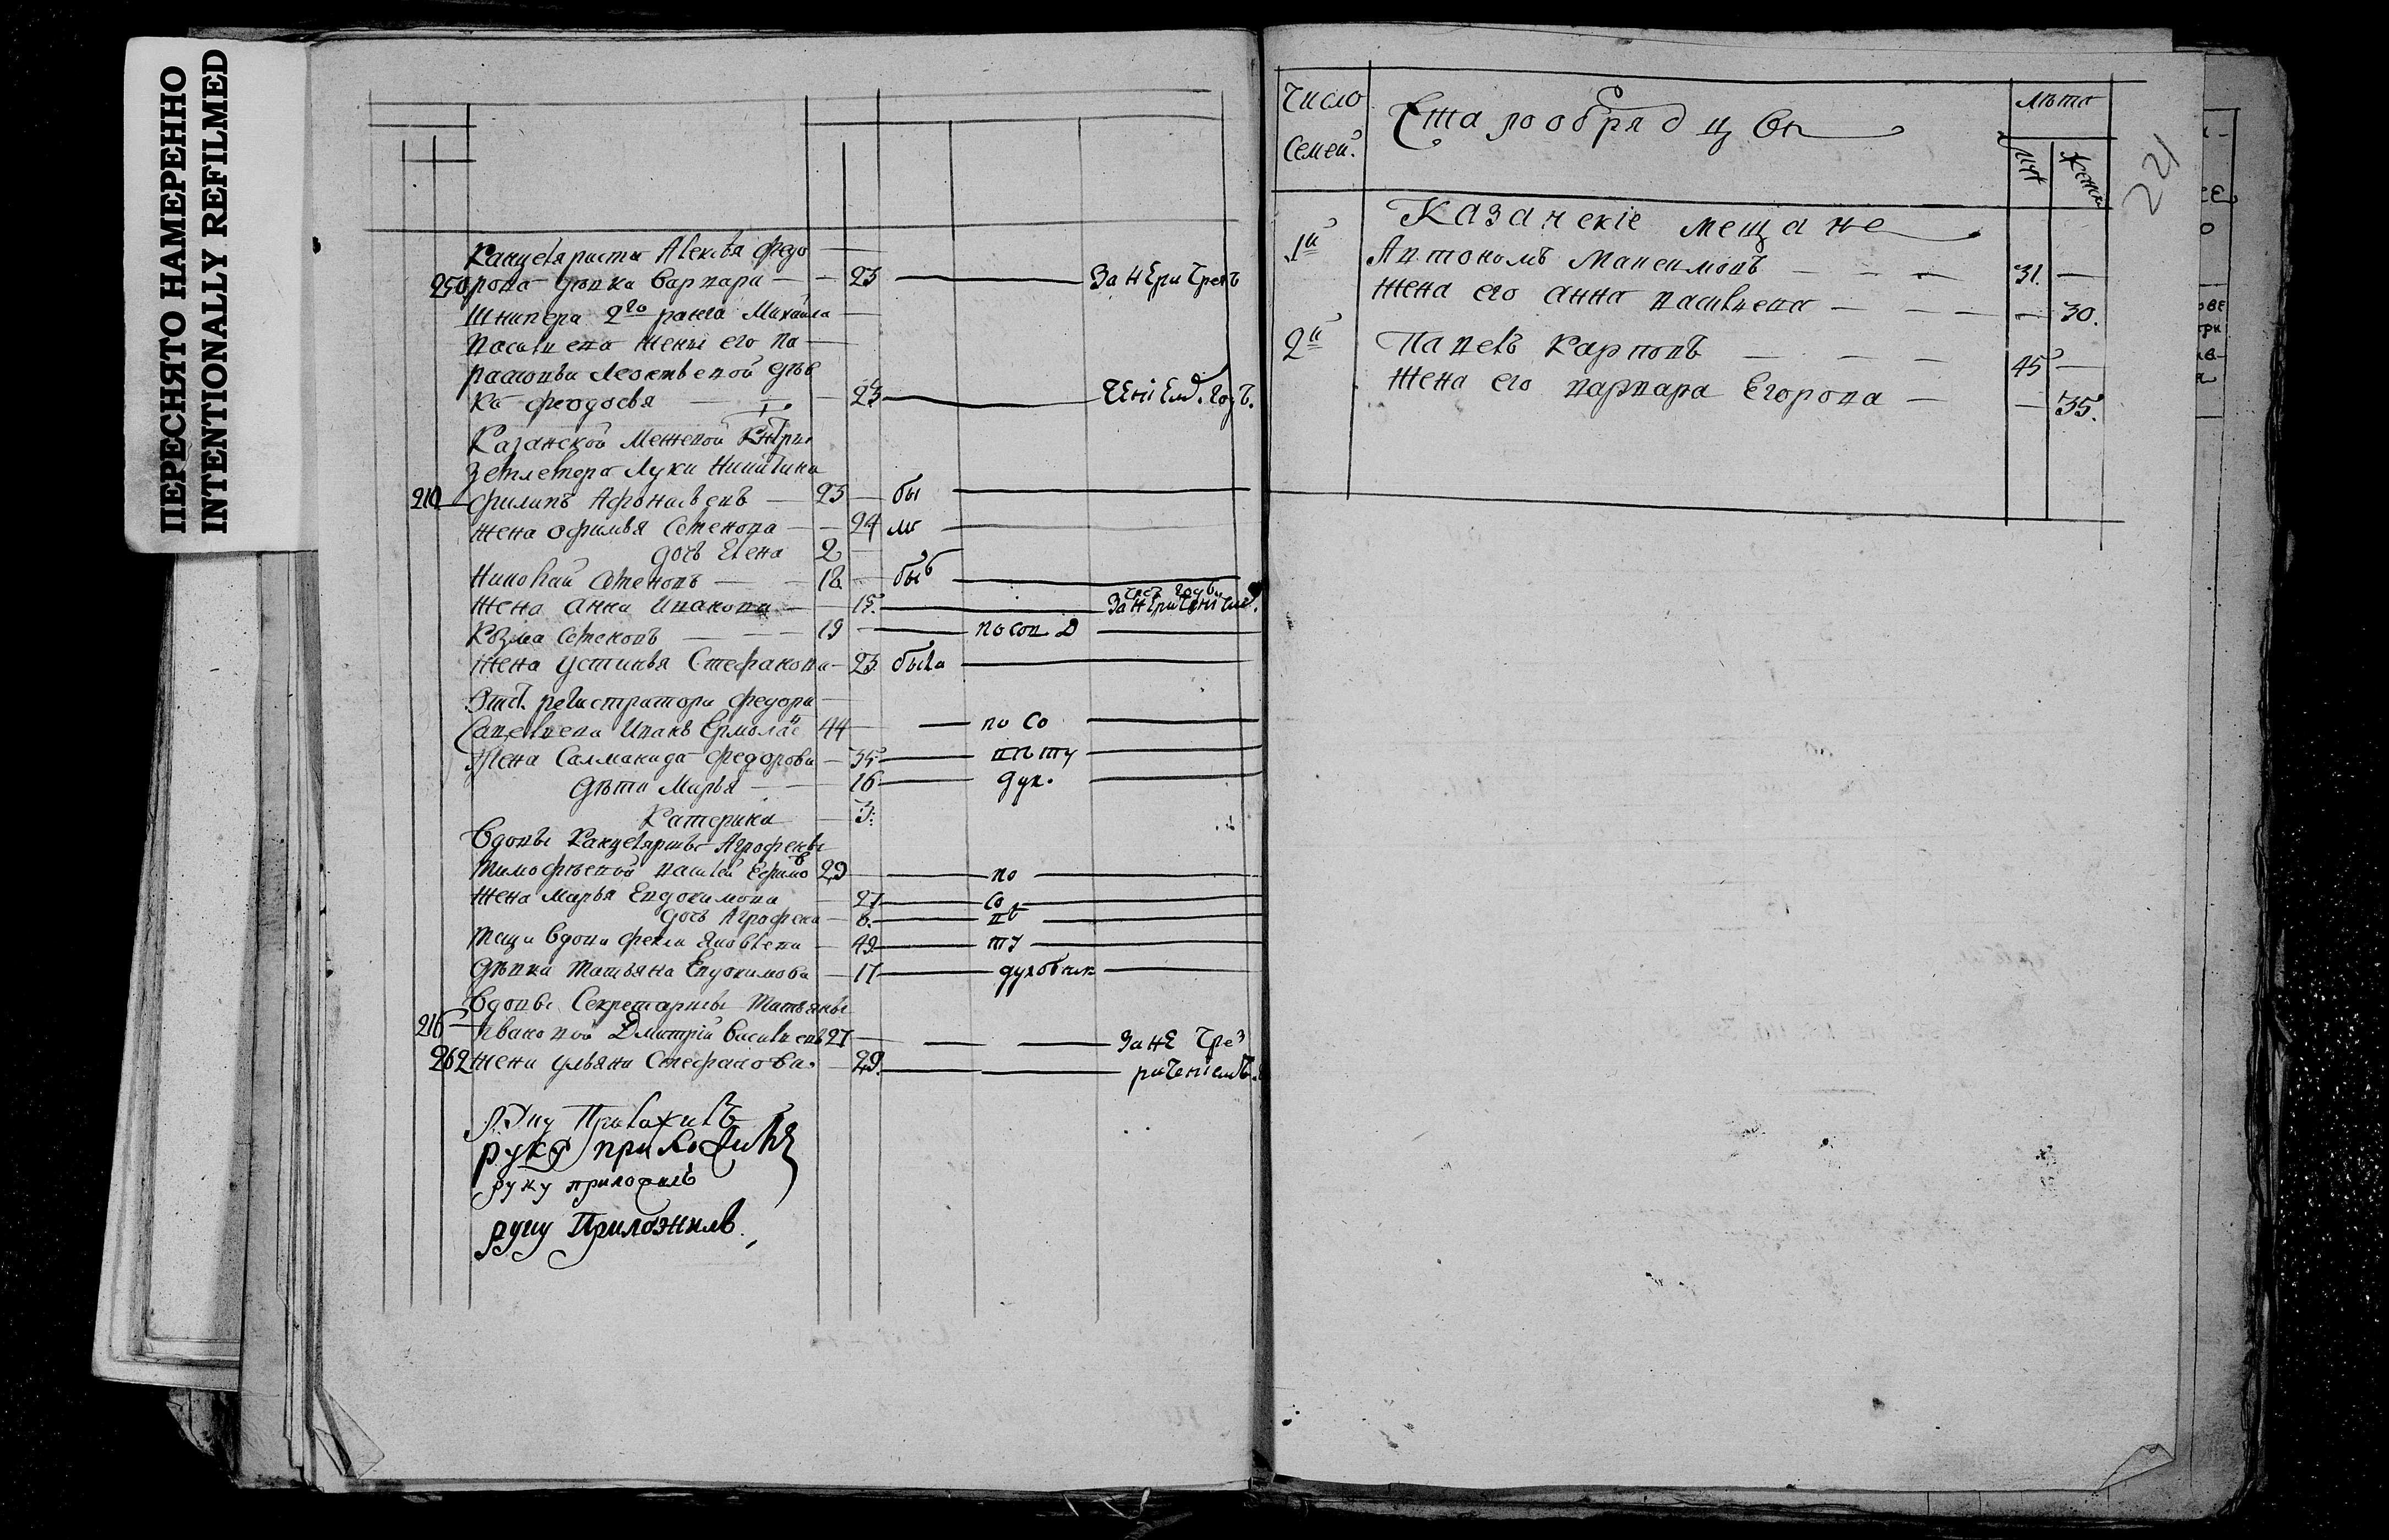 ПЕРЕСНЯТО НАМЕРЕННО
INTENTIONALLY REFILMED
Канцеляриста Алексѣя Федо
250 рова дѣвка Варвара — 23 — За нерачен
Шкипера 2го ранга Михайла
Васильева жены его Па
расковьи Леонтьевой дѣв
ка Феодосья — 23 — ченіемъ.
Казанской Межевой
землемера Луки Никитина
210 Филипъ Афонасьевъ — 25 — бы
жена Офимья Семенова — 24 ли
дочь Елена 2
Николай Семеновъ — 18 — бы
жена Анна Ивакова — 15. — За нерачением.
Козма Семеновъ — 19 — по сов
жена Устинья Стефанова — 23 была
регистратора Федора
Савельева Иванъ Ермолае 44 — по со
Жена Саламанида Федорова — 35 — вѣту
дѣти Марья — 16 — дух.
Катерина — 3:
Вдовы Канцелярши Агрофены
Тимофѣевой Василей Ефимов 29 — по
жена Марья Евдокимова — 27 — со
дочь Агрофена — 6. — вѣ
теща вдова Фекла Яковлева — 49 — ту
дѣвка Татьяна Евдокимова — 17 — духовник
Вдовы Секретарши Татьяны
216 Ивановой Дмитрій Васильевъ 27 — За не
262 жена Ульяна Стефанова. — 29. — раченіемъ.
руку Приложилъ
руку приложилъ
руку приложилъ
руку Приложилъ
Число Семей.
Старообрядцы
Лѣта
Муж
Женск
221
Казанскіе мещане
1й Автономъ Максимовъ — 31. —
жена его Анна Васильева — 30.
2й Павелъ Карповъ — 45 —
жена его Варвара Егорова — 35.